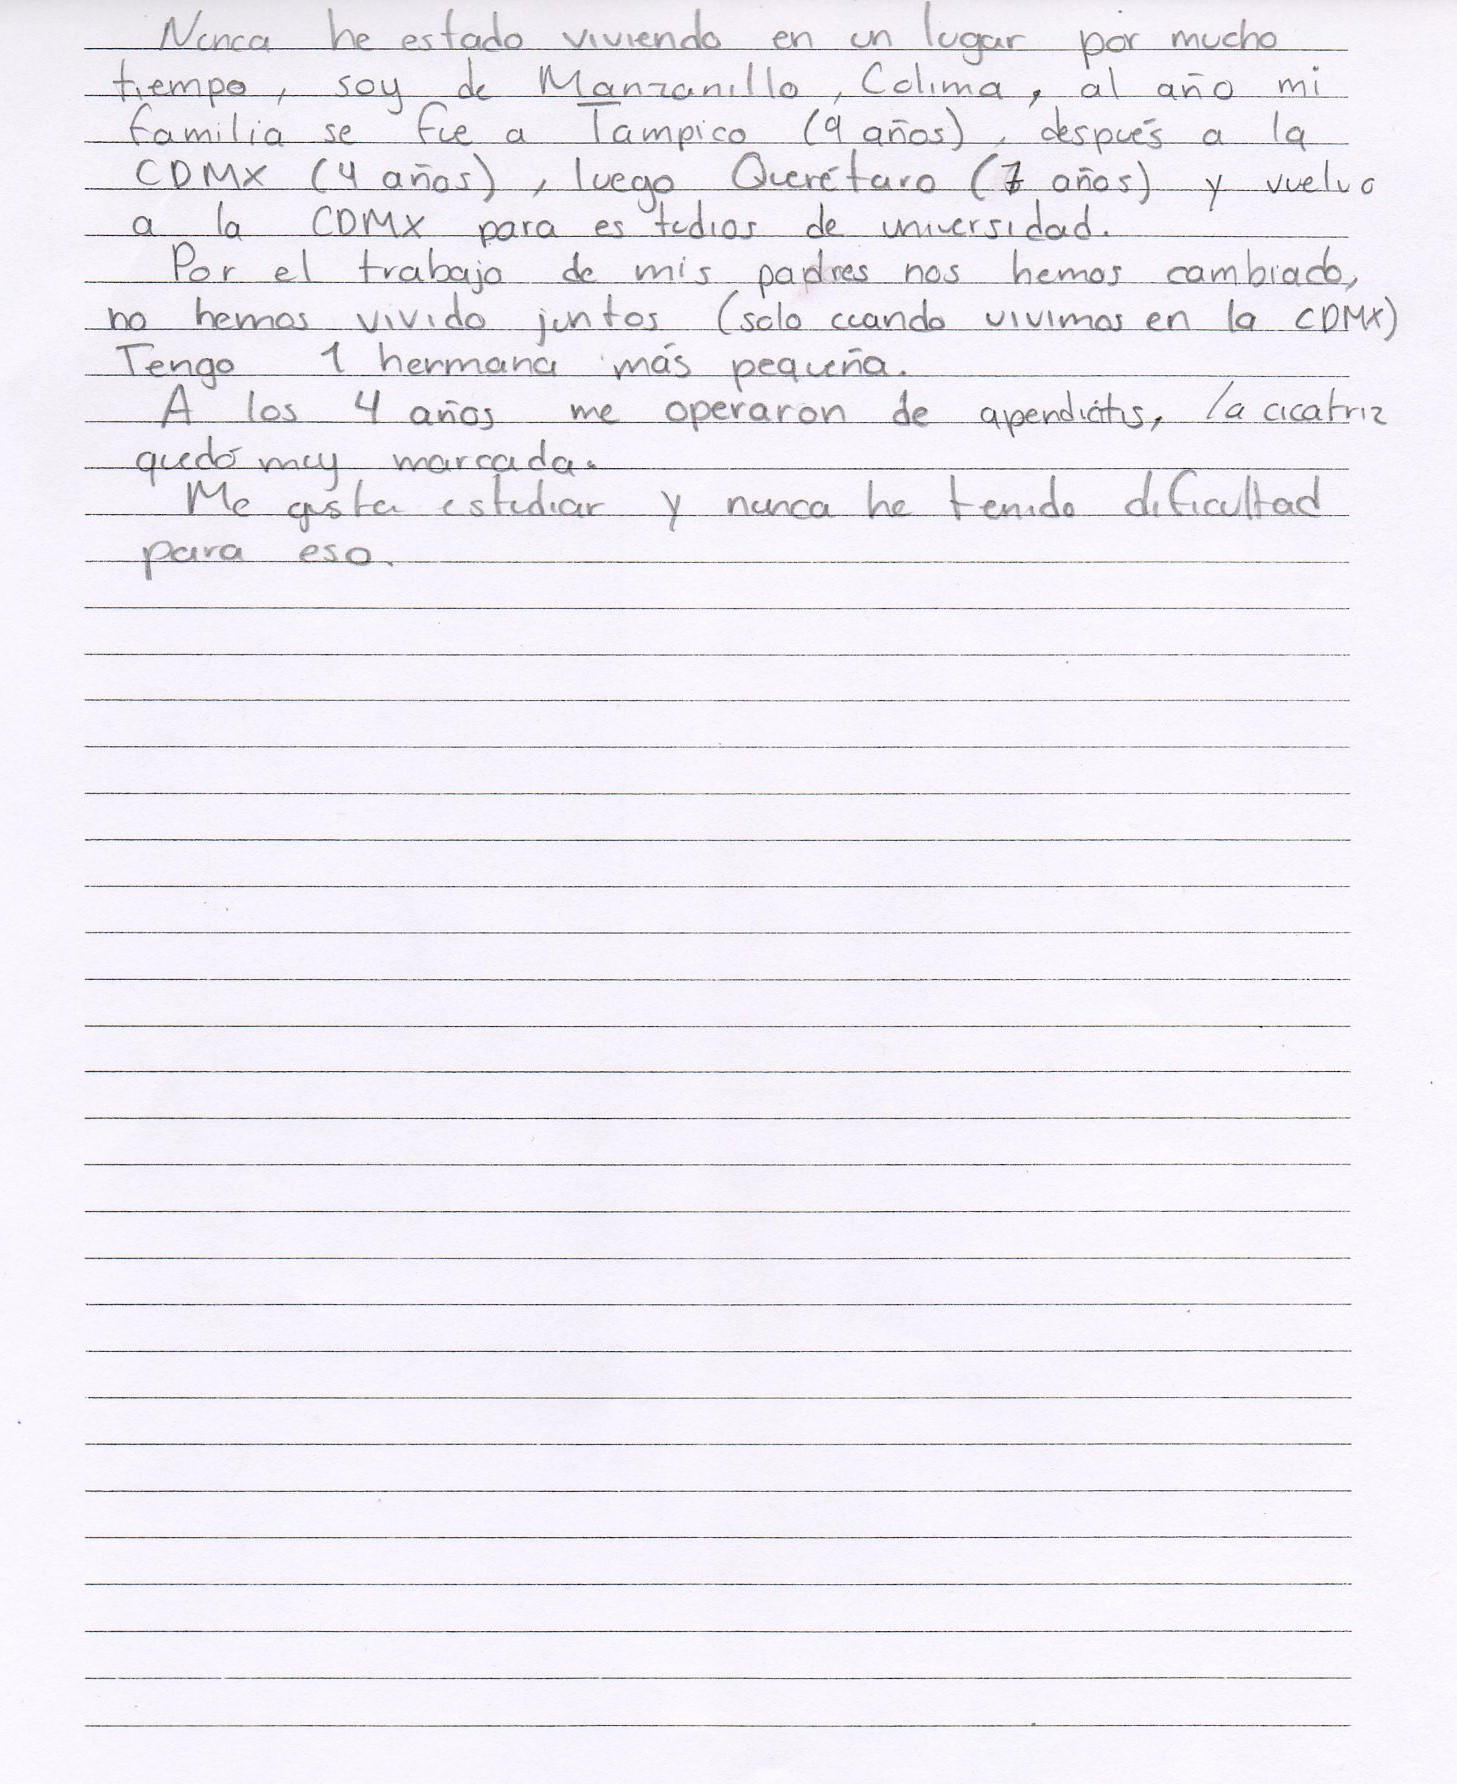 Nunca he estado viviendo en un lugar por mucho
tiempo, soy de Manzanillo, Colima, al año mi
familia se fue a Tampico (9 años), después a la
CDMX (4 años), luego Querétaro (7 años) y vuelvo
a la CDMX para estudios de universidad.
Por el trabajo de mis padres nos hemos cambiado,
no hemos vivido juntos (solo cuando vivimos en la CDMX)
Tengo 1 hermana más pequeña.
A los 4 años me operaron de apendicitis, la cicatriz
quedó muy marcada.
Me gusta estudiar y nunca he tenido dificultad
para eso.